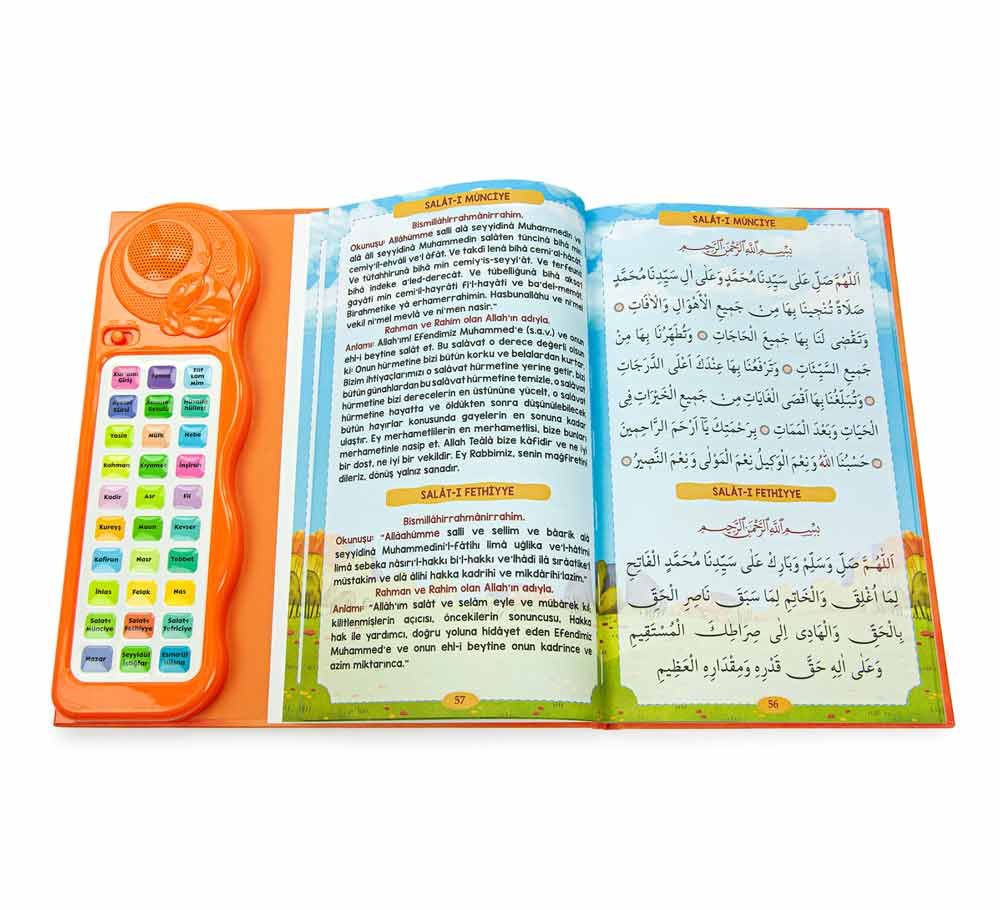 Kur'ana Giriş
Fatiha
Elif Lam Mim
Ayetel Kürsi
Amene Resulü
Hüvallahüllezi
Yasin
Mülk
Nebe
Rahman
Kıyamet
İnşirah
Kadir
Asr
Fil
Kureyş
Maun
Kevser
Kafirun
Nasr
Tebbet
İhlas
Felak
Nas
Salat-ı Münciye
Salat-ı Fethiyye
Salat-ı Tefriciye
Nazar
Seyyidül İstiğfar
Esmaül Hüsna
SALÂT-I MÜNCİYE
Bismillâhirrahmânirrahim.
Okunuşu: Allâhümme salli alâ seyyidinâ Muhammedin ve
alâ âli seyyidinâ Muhammedin salâten tüncinâ bihâ min
cemiy'il-ehvâli ve'l âfât. Ve takdi lenâ bihâ cemi'al-hâcât.
Ve tütahhirunâ bihâ min cemiy'is-seyyi'ât. Ve terfeunâ
bihâ indeke a'led-derecât. Ve tübelliğunâ bihâ aksal
ğayâti min cemi'il-hayrâti fi'l-hayâti ve ba'del-memât.
Birahmetike yâ erhamerrahimin. Hasbunallâhu ve ni'mel
vekil ni'mel mevlâ ve ni'men nasir."
Rahman ve Rahim olan Allah'ın adıyla.
Anlamı: Allah'ım! Efendimiz Muhammed'e (s.a.v.) ve onun
ehl-i beytine salât et. Bu salâvat o derece değerli olsun
ki: Onun hürmetine bizi bütün korku ve belalardan kurtar.
Bizim ihtiyaçlarımızı o salâvat hürmetine yerine getir, bizi
bütün günahlardan bu salâvat hürmetine temizle, o salâvat
hürmetine bizi derecelerin en üstününe yücelt, o salâvat
hürmetine hayatta ve öldükten sonra düşünülebilecek
bütün hayırlar konusunda gayelerin en sonuna kadar
ulaştır. Ey merhametlilerin en merhametlisi, bize bunları
merhametinle nasip et. Allah Teâlâ bize kâfidir ve ne iyi
bir dost, ne iyi bir vekildir. Ey Rabbimiz, senin mağfiretini
dileriz, dönüş yalnız sanadır.
SALÂT-I FETHİYYE
Bismillâhirrahmânirrahim.
Okunuşu: "Allâahümme salli ve sellim ve bâarik alâ
seyyidinâ Muhammedini'l-Fâtihı limâ uğlika ve'l-hâtimi
limâ sebeka nâsıri'l-hakkı bi'l-hakkı ve'lhâdi ilâ sırâatikel
müstakim ve alâ âlihi hakka kadrihi ve mikdârihi'lazim."
Rahman ve Rahim olan Allah'ın adıyla.
Anlamı: "Allâh'ım salât ve selâm eyle ve mübârek kıl,
kilitlenmişlerin açıcısı, öncekilerin sonuncusu, Hakka
hak ile yardımcı, doğru yoluna hidâyet eden Efendimiz
Muhammed'e ve onun ehl-i beytine onun kadrince ve
azim miktarınca."
57
SALÂT-I MÜNCİYE
بِسْمِ اللّٰهِ الرَّحْمٰنِ الرَّحِيمِ
اَللّٰهُمَّ صَلِّ عَلٰى سَيِّدِنَا مُحَمَّدٍ وَعَلٰى اٰلِ سَيِّدِنَا مُحَمَّدٍ
صَلَاةً تُنْجِينَا بِهَا مِنْ جَمِيعِ الْاَهْوَالِ وَالْاٰفَاتِ
وَتَقْضِى لَنَا بِهَا جَمِيعَ الْحَاجَاتِ وَتُطَهِّرُنَا بِهَا مِنْ
جَمِيعِ السَّيِّئَاتِ وَتَرْفَعُنَا بِهَا عِنْدَكَ اَعْلَى الدَّرَجَاتِ
وَتُبَلِّغُنَا بِهَا اَقْصَى الْغَايَاتِ مِنْ جَمِيعِ الْخَيْرَاتِ فِى
الْحَيَاتِ وَبَعْدَ الْمَمَاتِ بِرَحْمَتِكَ يَآ اَرْحَمَ الرَّاحِمِينَ
حَسْبُنَا اللّٰهُ وَنِعْمَ الْوَكِيلُ نِعْمَ الْمَوْلٰى وَنِعْمَ النَّصِيرُ
SALÂT-I FETHİYYE
بِسْمِ اللّٰهِ الرَّحْمٰنِ الرَّحِيمِ
اَللّٰهُمَّ صَلِّ وَسَلِّمْ وَبَارِكْ عَلٰى سَيِّدِنَا مُحَمَّدٍ الْفَاتِحِ
لِمَا اُغْلِقَ وَالْخَاتِمِ لِمَا سَبَقَ نَاصِرِ الْحَقِّ
بِالْحَقِّ وَالْهَادِى اِلٰى صِرَاطِكَ الْمُسْتَقِيمِ
وَعَلٰى اٰلِهِ حَقَّ قَدْرِهِ وَمِقْدَارِهِ الْعَظِيمِ
56